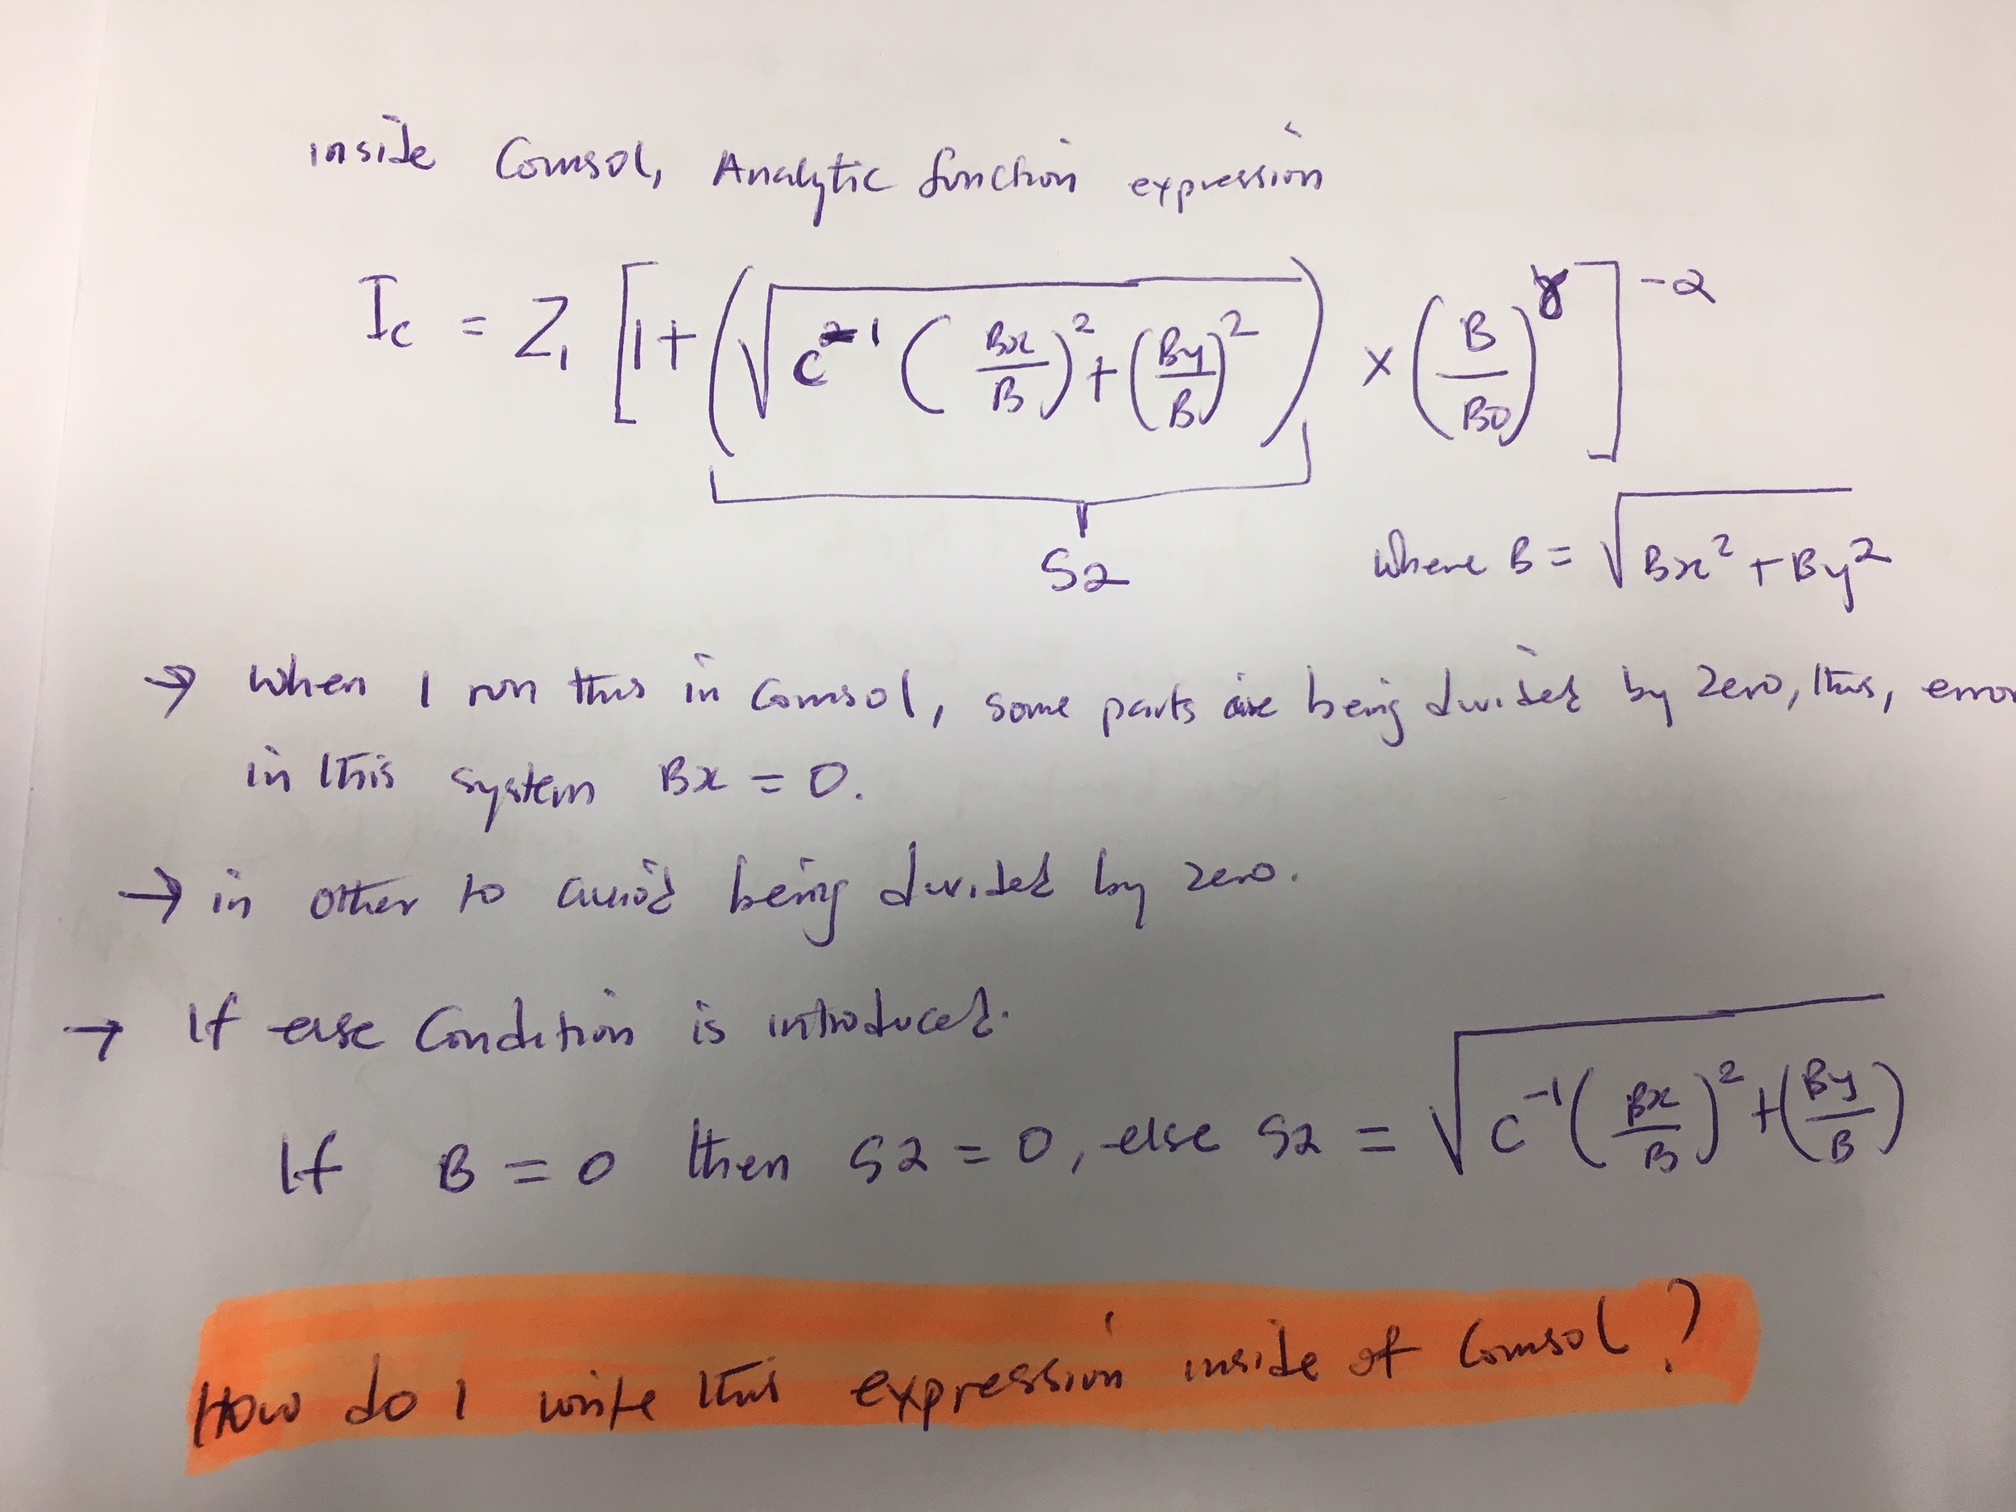 inside Comsol, Analytic function expression
Ic = Z1 [1+(√(c^-1 (Bx/B)^2+(By/B)^2)) × (B/B0)^γ]^-α
S2
where B = √(Bx^2+By^2)
→ when I run this in Comsol, some parts are being divided by zero, thus, error
in this system Bx = 0.
→ in other to avoid being divided by zero.
→ If else Condition is introduced.
If B = 0 then S2 = 0, else S2 = √(c^-1(Bx/B)^2+(By/B))
How do I write this expression inside of Comsol?